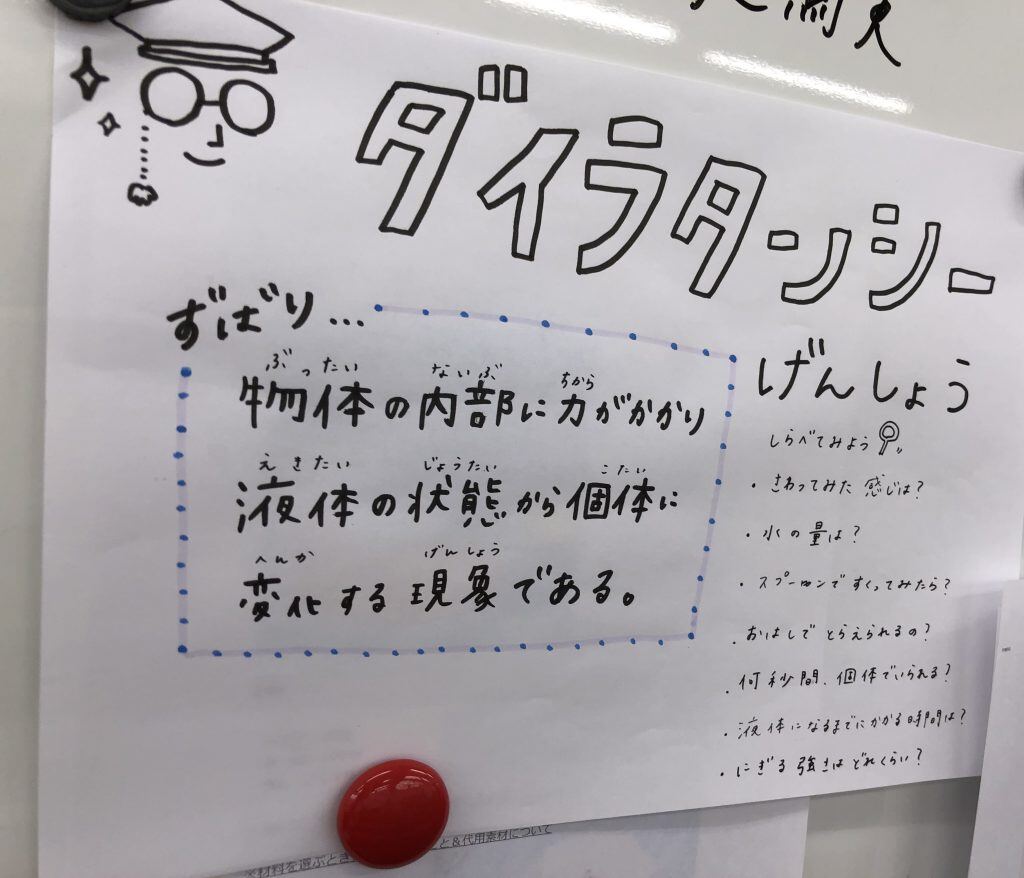 ダイラタンシー
げんしょう
ずばり...
ぶったい ないぶ ちから
物体の内部に力がかかり
えきたい じょうたい こたい
液体の状態から個体に
へんか げんしょう
変化する現象である。
しらべてみよう
・さわってみた感じは?
・水の量は?
・スプーンですくってみたら?
・おはしでとらえられるの?
・何秒間、個体でいられる?
・液体になるまでにかかる時間は?
・にぎる強さはどれくらい?
材料を選ぶとき
と&代用素材について